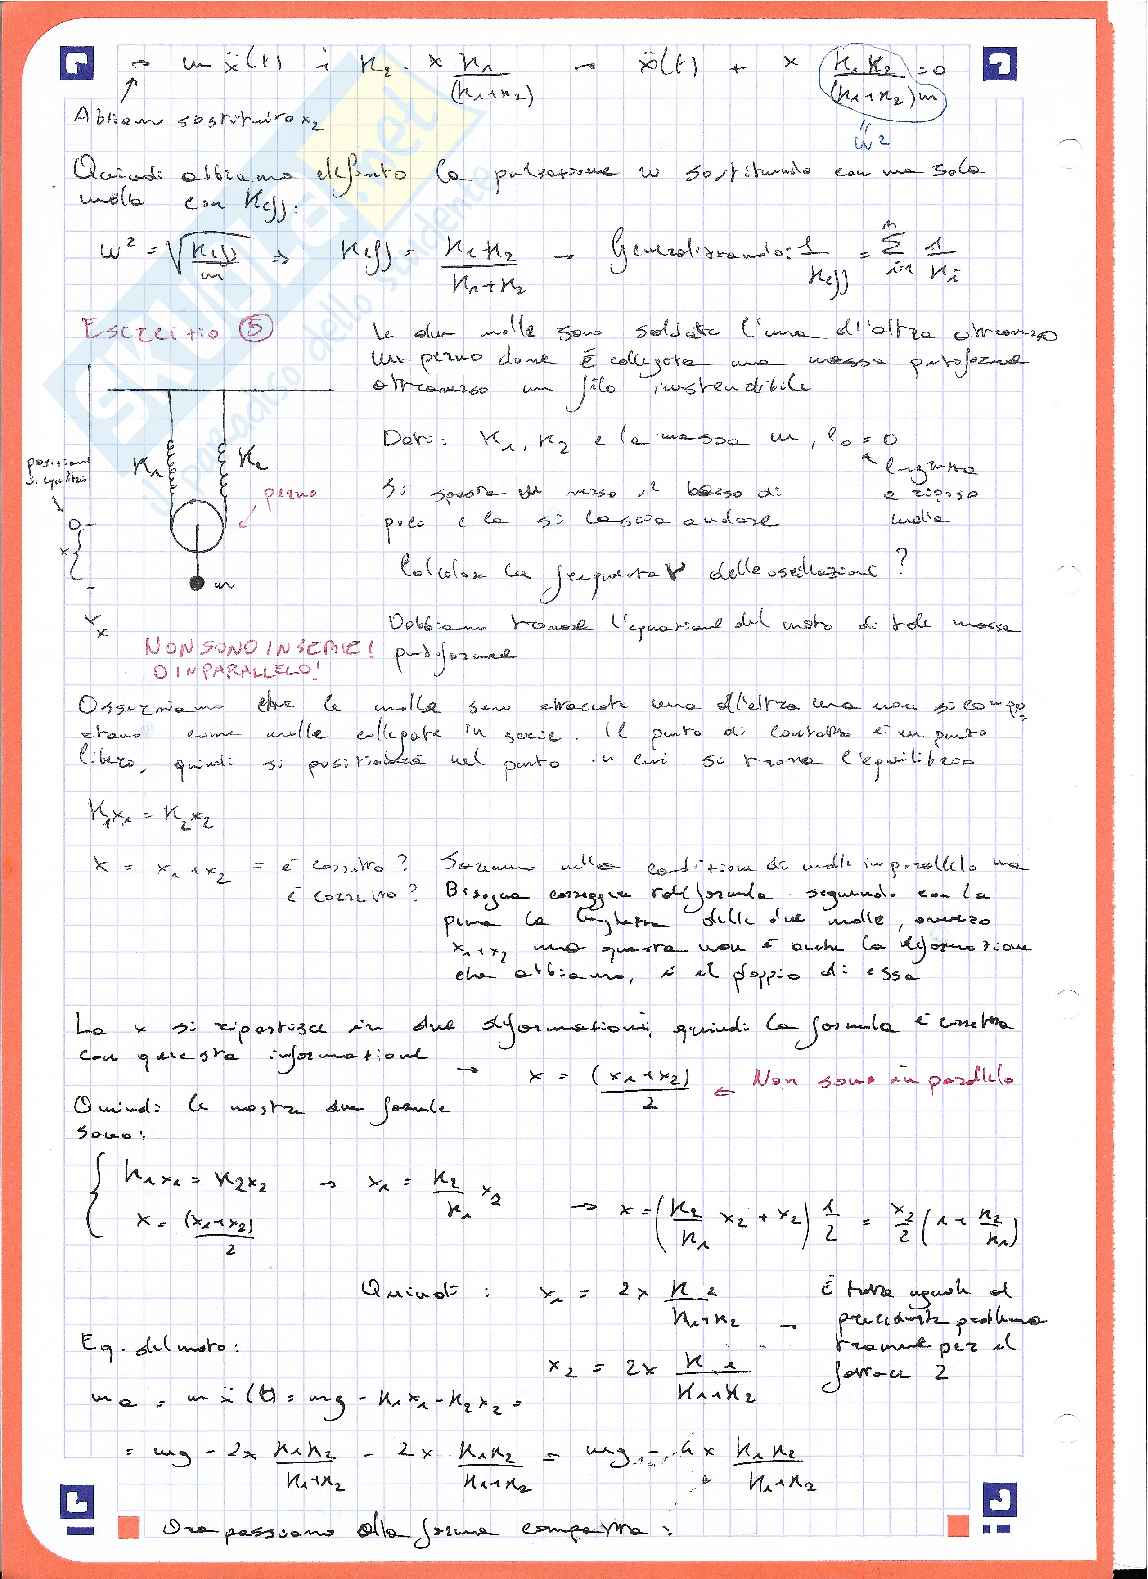 → m ẍ(t) + K2 · x K1/(K1+K2) → ẍ(t) + x K1K2/((K1+K2)m) = 0
Abbiamo sostituito x2
" ω²
Quindi abbiamo definito la pulsazione ω sostituendo con una sola
molla con Keff:
ω² = √(Keff/m) ⇒ Keff = K1K2/(K1+K2) → Generalizzando: 1/Keff = Σ i=1 n 1/Ki
Esercizio 5
Le due molle sono soldate l'una all'altra attraverso
un perno dove è collegata una massa puntiforme
attraverso un filo inestendibile
Dati: K1, K2 e la massa m, l0 = 0
lunghezza
a riposo
molla
posizione
di equilibrio
K1
K2
perno
0
x
m
x
Si sposta m verso il basso di
poco e la si lascia andare
Calcolare la frequenza ν delle oscillazioni?
Dobbiamo trovare l'equazione del moto di tale massa
puntiforme
NON SONO IN SERIE!
O IN PARALLELO!
Osserviamo che le molle sono attaccate una all'altra ma non si compo
rtano come molle collegate in serie. Il punto di contatto è un punto
libero, quindi si posizionerà nel punto in cui si trova l'equilibrio
K1x1 = K2x2
x = x1+x2 = è corretto? Saremmo nella condizione di molle in parallelo ma
è corretto? Bisogna correggere tale formula seguendo con la
penna la lunghezza delle due molle, ovvero
x1+x2 ma questa non è anche la deformazione
che abbiamo, è il doppio di essa
La x si ripartisce in due deformazioni, quindi la formula è corretta
con questa informazione
→ x = (x1+x2)/2 ← Non sono in parallelo
Quindi le nostre due formule
sono:
{ K1x1 = K2x2 → x1 = K2/K1 x2
x = (x1+x2)/2
→ x = (K2/K1 x2 + x2) 1/2 = x2/2 (1+ K2/K1)
Quindi: x1 = 2x K2/(K1+K2)
x2 = 2x K1/(K1+K2)
→ È tutto uguale al
precedente problema
tranne per il
fattore 2
Eq. del moto:
ma = m ẍ(t) = mg - K1x1 - K2x2 =
= mg - 2x K1K2/(K1+K2) - 2x K1K2/(K1+K2) = mg - 4x K1K2/(K1+K2)
Ora passiamo alla forma compatta: